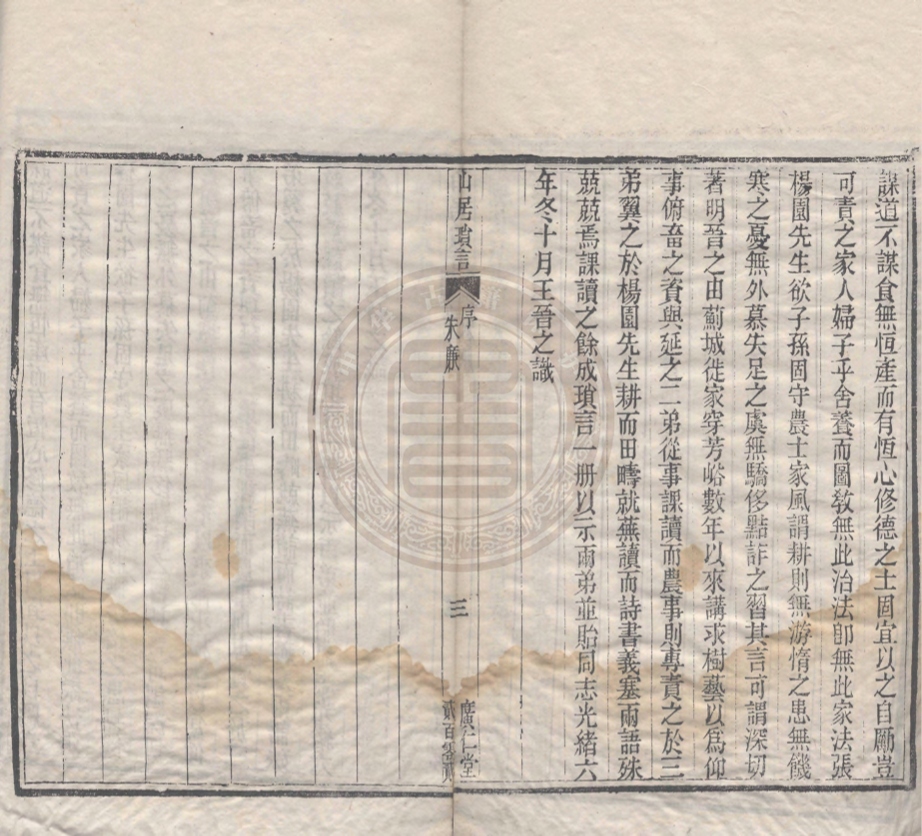 謀道不謀食無恆產而有恆心修德之士固宜以之自勵豈
可責之家人婦子乎舍養而圖敎無此治法卽無此家法張
楊園先生欲子孫固守農士家風謂耕則無游惰之患無饑
寒之憂無外慕失足之虞無驕侈黠詐之習其言可謂深切
著明晉之由薊城徙家穿芳峪數年以來講求樹藝以爲仰
事俯畜之資與延之二弟從事課讀而農事則專責之於三
弟翼之於楊園先生耕而田疇就蕪讀而詩書義塞兩語殊
兢兢焉課讀之餘成瑣言一册以示兩弟並貽同志光緒六
年冬十月王晉之識
山居瑣言
序
三
廣仁堂